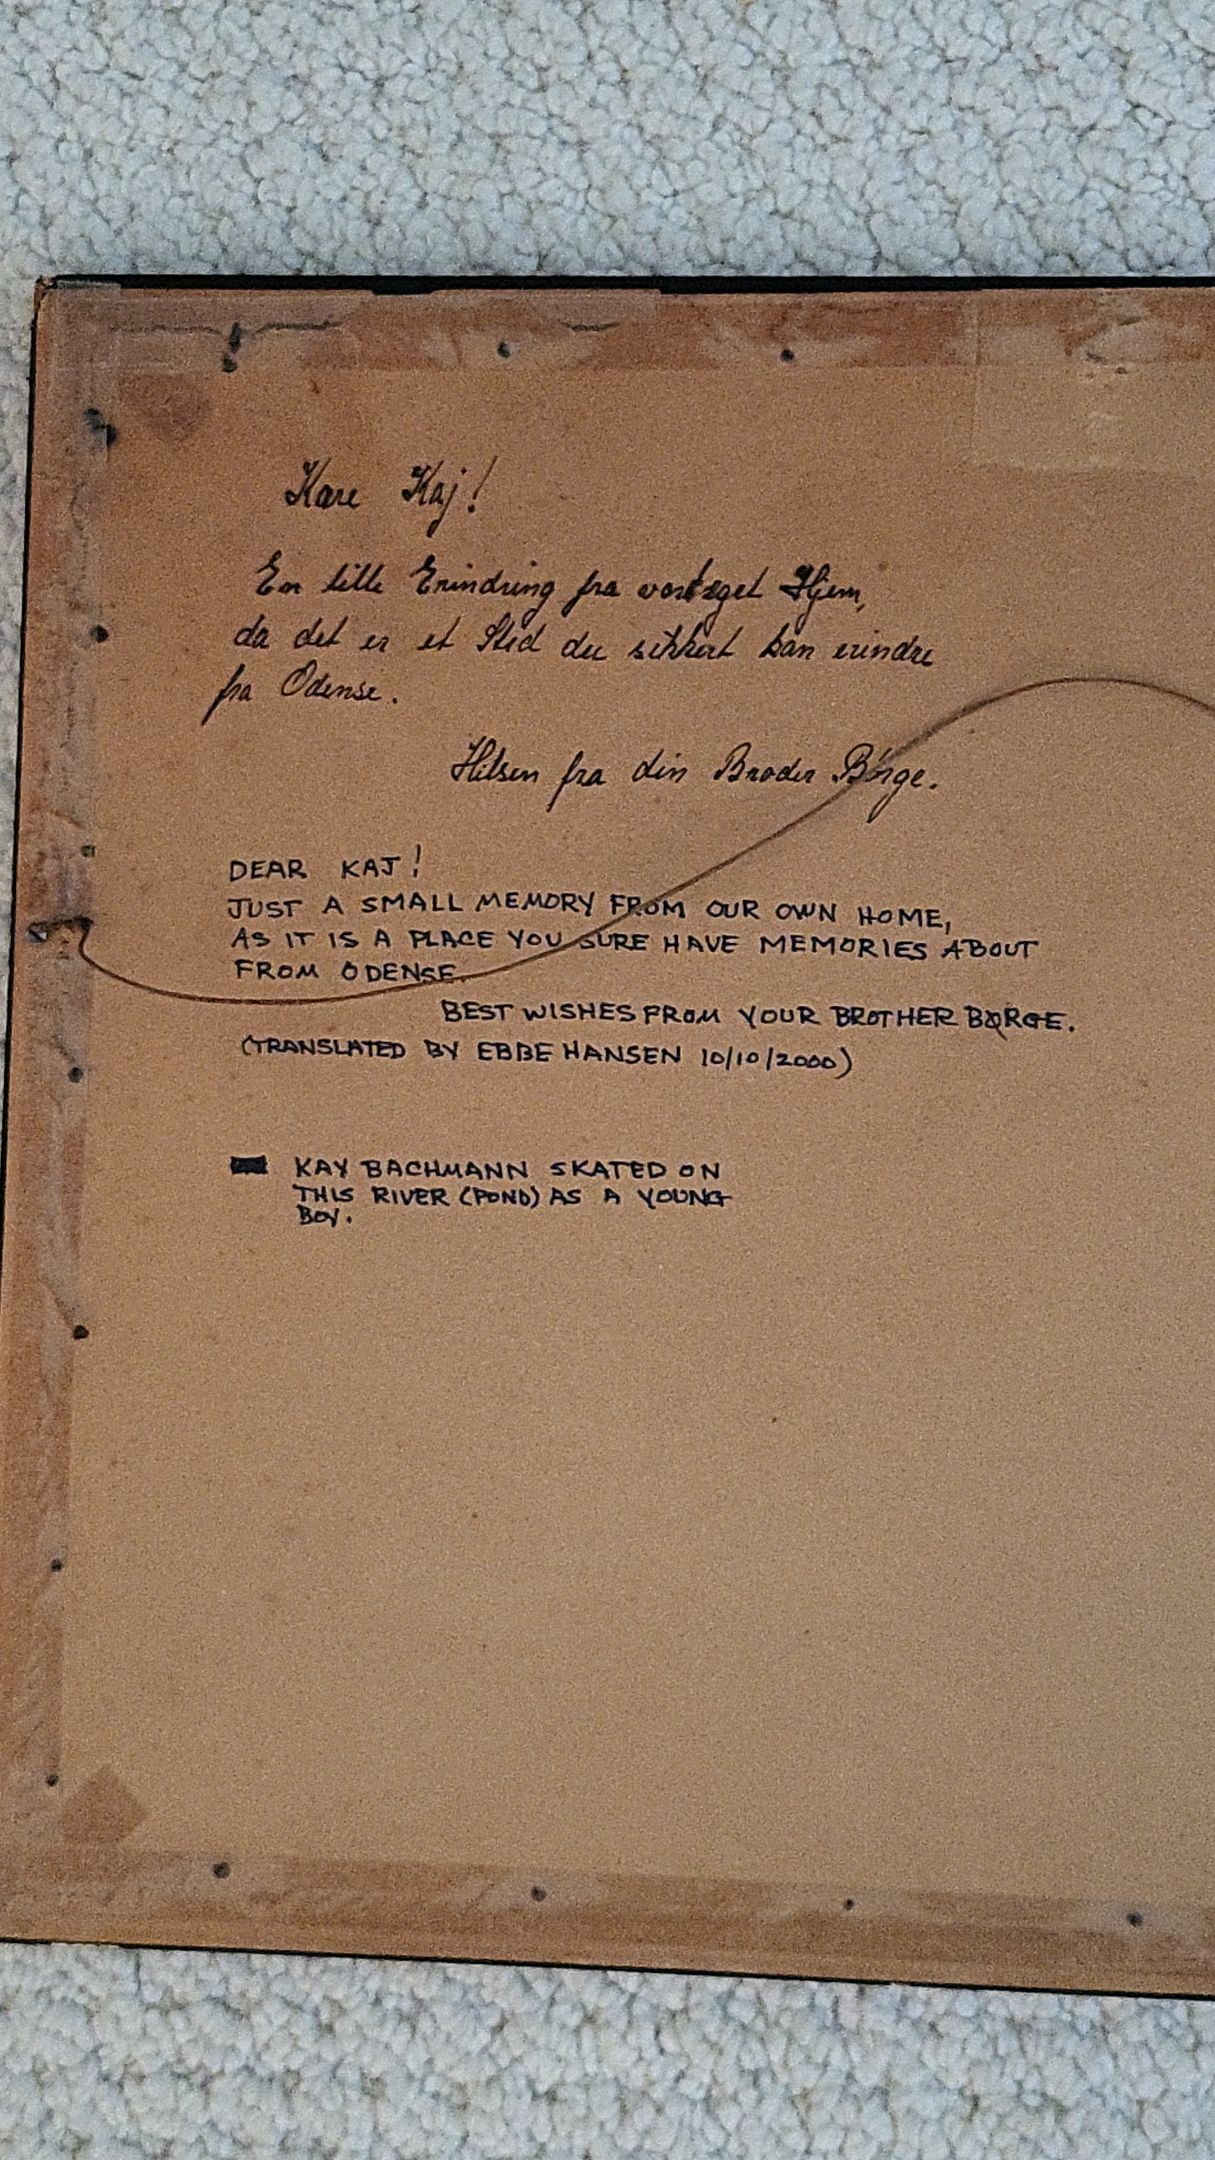 Kære Kaj!
En lille Erindring fra vort eget Hjem,
da det er et Sted du sikkert kan erindre
fra Odense.
Hilsen fra din Broder Börge.
DEAR KAJ!
JUST A SMALL MEMORY FROM OUR OWN HOME,
AS IT IS A PLACE YOU SURE HAVE MEMORIES ABOUT
FROM ODENSE.
BEST WISHES FROM YOUR BROTHER BØRGE.
(TRANSLATED BY EBBE HANSEN 10/10/2000)
KAY BACHMANN SKATED ON
THIS RIVER (POND) AS A YOUNG
BOY.